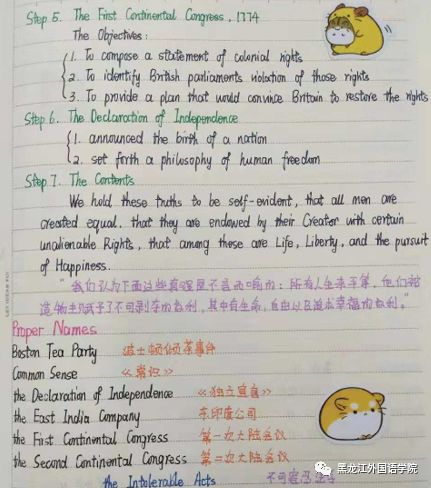 Step 5. The First Continental Congress, 1774
The Objectives:
1. To compose a statement of colonial rights
2. To identify British parliaments violation of those rights
3. To provide a plan that would convince Britain to restore the rights
Step 6. The Declaration of Independence
1. announced the birth of a nation
2. set forth a philosophy of human freedom
Step 7. The Contents
We hold these truths to be self-evident, that all men are
created equal, that they are endowed by their Creator with certain
unalienable Rights, that among these are Life, Liberty, and the pursuit
of Happiness.
"我们认为下面这些真理是不言而喻的：所有人生来平等，他们被
造物主赋予了不可剥夺的权利，其中有生命、自由以及追求幸福的权利。"
Proper Names
Boston Tea Party 波士顿倾茶事件
Common Sense 《常识》
the Declaration of Independence 《独立宣言》
the East India Company 东印度公司
the First Continental Congress 第一次大陆会议
the Second Continental Congress 第二次大陆会议
the Intolerable Acts 不可容忍
黑龙江外国语学院